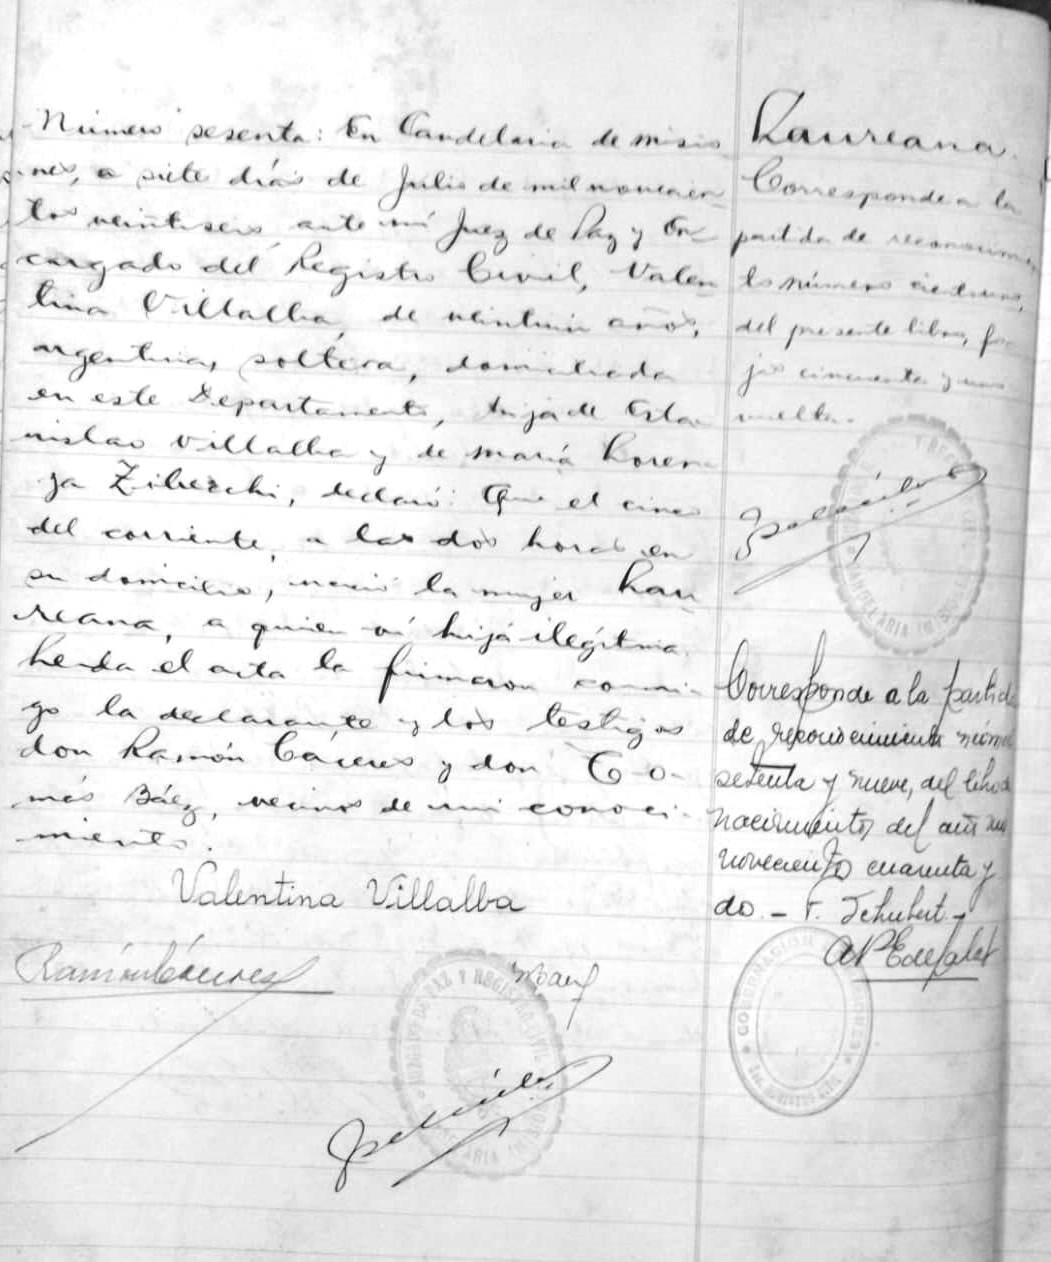 Número sesenta: En Candelaria de Misio-
nes, a siete días de Julio de mil novecien-
tos veintiseis ante mí Juez de Paz y En-
cargado del Registro Civil, Valen-
tina Villalba, de años,
argentina, soltera, domiciliada
en este Departamento, hija de Esta-
nislao Villalba y de María Loren-
za Zibecchi, declaró: Que el cinco
del corriente, a las dos horas en
su domicilio, nació la mujer Lau-
reana, a quien hija ilegítima.
el acta la firmaron conmi-
go la declarante y los testigos
don Ramón Cáceres y don To-
más Báez, vecinos de mi conoci-
miento.
Valentina Villalba
Ramón Cáceres
TBaez
JUZGADO DE PAZ Y REGISTRO CIVIL
Laureana.
Corresponde a la
partida de reconocimien
to número
del presente libro, fo-
jas cincuenta y una
vuelta.
CANDELARIA (MISIONES)
Corresponde a la partida
de reconocimiento núme
setenta y nueve, del libro de
nacimientos del año mil
novecientos cuarenta y
do. - F. Schubert -
GOBERNACION